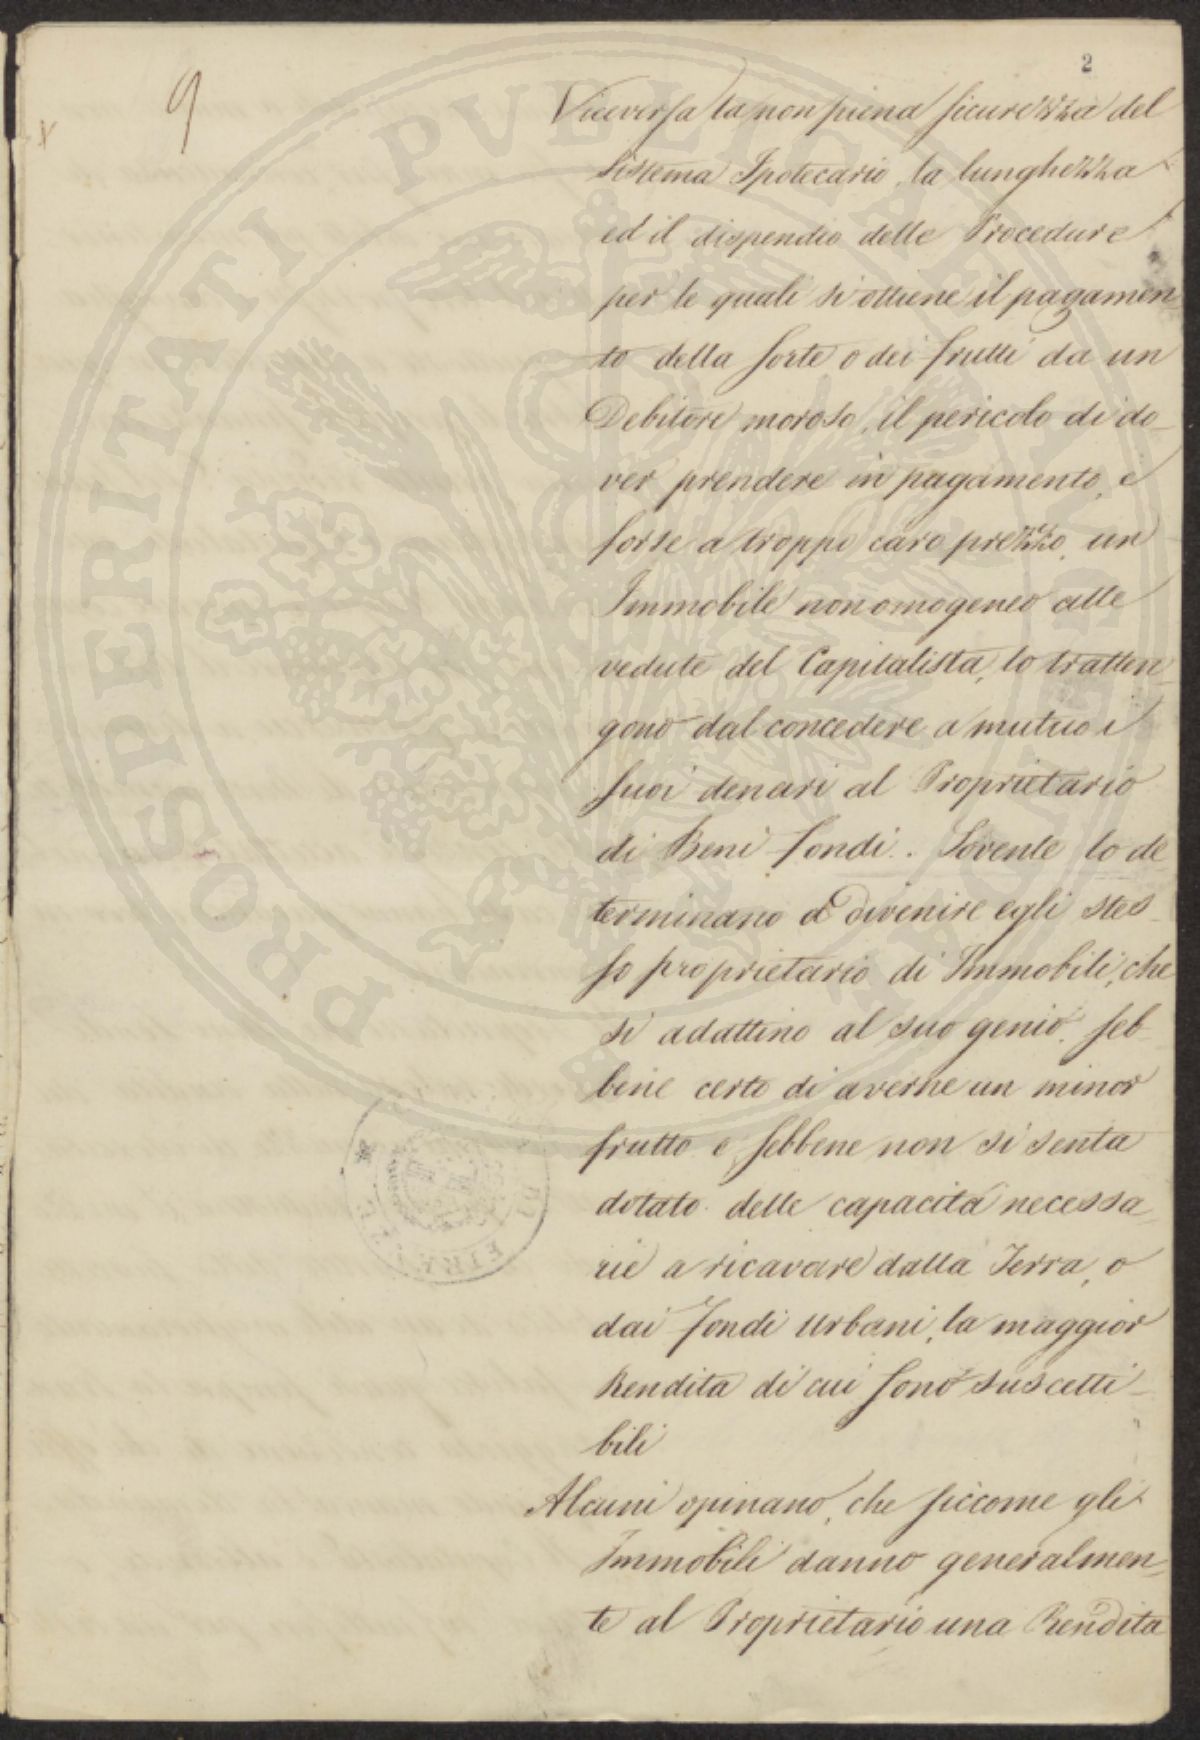 2
9
Viceversa la non piena sicurezza del
sistema Ipotecario, la lunghezza
ed il dispendio delle Procedure
per le quali si ottiene il pagamen
to della sorte o dei frutti da un
Debitore moroso, il pericolo di do-
ver prendere in pagamento, e
forse a troppo caro prezzo, un
Immobile non omogeneo alle
vedute del Capitalista, lo tratten-
gono dal concedere a mutuo i
suoi denari al Proprietario
di Beni fondi. Sovente lo de
terminano a Divenire egli stes-
so proprietario di Immobili, che
si adattino al suo genio, seb-
bene certo di averne un minor
frutto e sebbene non si senta
dotato delle capacità necessa-
rie a ricavare dalla Terra, o
dai fondi urbani, la maggior
Rendita di cui sono suscetti-
bili
Alcuni opinano, che siccome gli
Immobili danno generalmen-
te al Proprietario una Rendita
PROSPERITATI PVBLICAE